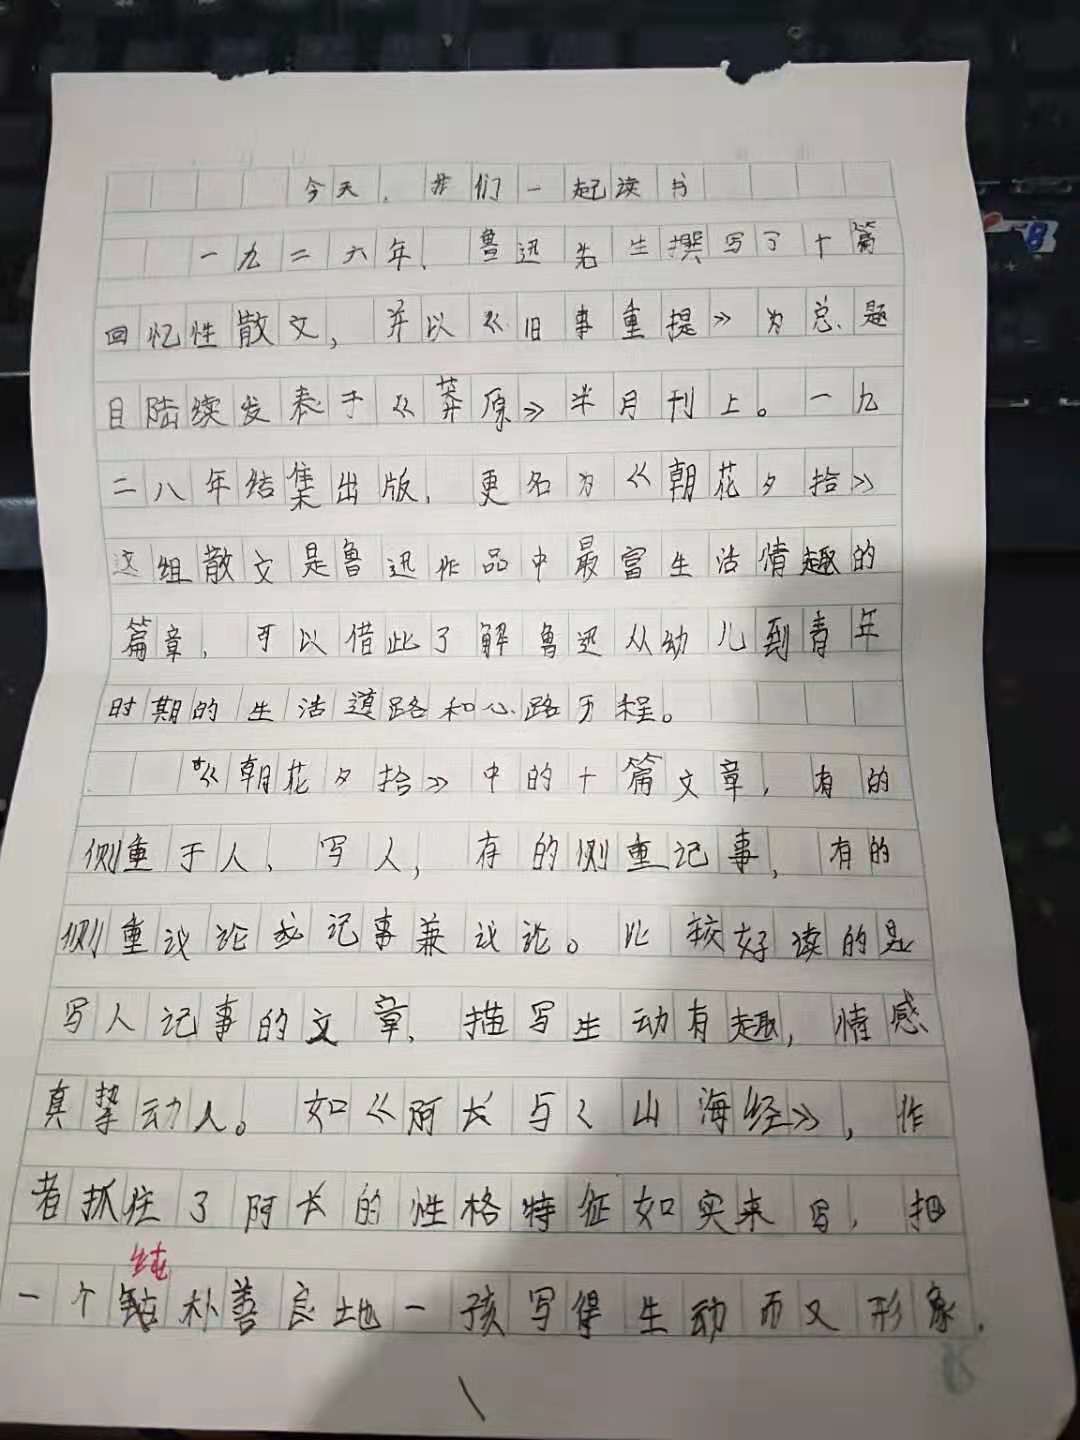 今天，我们一起读书
一九二六年，鲁迅先生撰写了十篇
回忆性散文，并以《旧事重提》为总题
目陆续发表于《莽原》半月刊上。一九
二八年结集出版，更名为《朝花夕拾》
这组散文是鲁迅作品中最富生活情趣的
篇章，可以借此了解鲁迅从幼儿到青年
时期的生活道路和心路历程。
《朝花夕拾》中的十篇文章，有的
侧重于人、写人，有的侧重记事，有的
侧重议论或记事兼议论。比较好读的是
写人记事的文章，描写生动有趣，情感
真挚动人。如《阿长与〈山海经》，作
者抓住了阿长的性格特征如实来写，把
纯
一个朴善良地一孩写得生动而又形象.